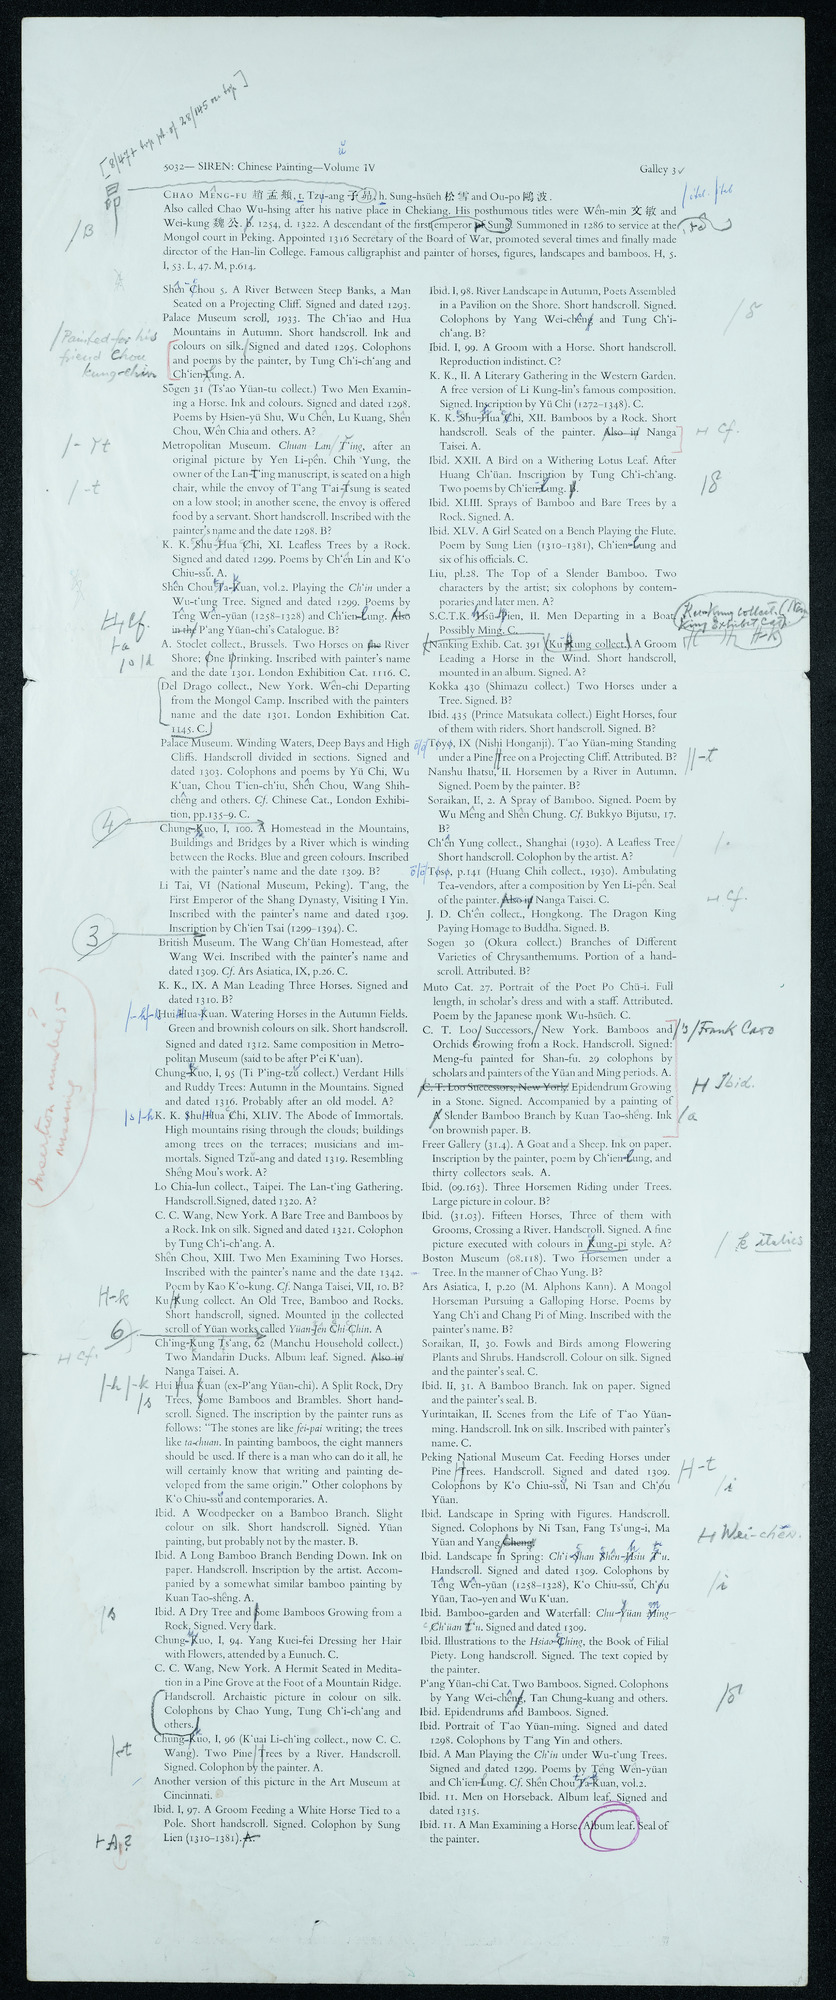 [8/47+ top pt of 28/145 on top]
昂
5032— SIREN: Chinese Painting—Volume IV
Galley 3
CHAO MÊNG-FU 趙孟頫, t. Tzŭ-ang 子昂, h. Sung-hsüeh 松雪 and Ou-po 鷗波.
Also called Chao Wu-hsing after his native place in Chekiang. His posthumous titles were Wên-min 文敏 and
Wei-kung 魏公. b. 1254, d. 1322. A descendant of the first emperor of Sung. Summoned in 1286 to service at the
Mongol court in Peking. Appointed 1316 Secretary of the Board of War, promoted several times and finally made
director of the Han-lin College. Famous calligraphist and painter of horses, figures, landscapes and bamboos. H, 5.
I, 53. L, 47. M, p.614.
Shên Chou 5. A River Between Steep Banks, a Man
Seated on a Projecting Cliff. Signed and dated 1293.
Palace Museum scroll, 1933. The Ch'iao and Hua
Mountains in Autumn. Short handscroll. Ink and
colours on silk. Signed and dated 1295. Colophons
and poems by the painter, by Tung Ch'i-ch'ang and
Ch'ien-Lung. A.
Painted for his
friend Chou
Kung-chin
Sōgen 31 (Ts'ao Yüan-tu collect.) Two Men Examin-
ing a Horse. Ink and colours. Signed and dated 1298.
Poems by Hsien-yü Shu, Wu Chên, Lu Kuang, Shên
Chou, Wên Chia and others. A?
Metropolitan Museum. Chuan Lan T'ing, after an
original picture by Yen Li-pên. Chih Yung, the
owner of the Lan-T'ing manuscript, is seated on a high
chair, while the envoy of T'ang T'ai-Tsung is seated
on a low stool; in another scene, the envoy is offered
food by a servant. Short handscroll. Inscribed with the
painter's name and the date 1298. B?
K. K. Shu-Hua Chi, XI. Leafless Trees by a Rock.
Signed and dated 1299. Poems by Ch'ên Lin and K'o
Chiu-ssŭ. A.
Shên Chou Ta-Kuan, vol.2. Playing the Ch'in under a
Wu-t'ung Tree. Signed and dated 1299. Poems by
Têng Wên-yüan (1258–1328) and Ch'ien-Lung. Also
in the P'ang Yüan-chi's Catalogue. B?
A. Stoclet collect., Brussels. Two Horses on the River
Shore; One Drinking. Inscribed with painter's name
and the date 1301. London Exhibition Cat. 1116. C.
Del Drago collect., New York. Wên-chi Departing
from the Mongol Camp. Inscribed with the painters
name and the date 1301. London Exhibition Cat.
1145. C.
Palace Museum. Winding Waters, Deep Bays and High
Cliffs. Handscroll divided in sections. Signed and
dated 1303. Colophons and poems by Yü Chi, Wu
K'uan, Chou T'ien-ch'iu, Shên Chou, Wang Shih-
chêng and others. Cf. Chinese Cat., London Exhibi-
tion, pp.135–9. C.
4
Chung-Kuo, I, 100. A Homestead in the Mountains,
Buildings and Bridges by a River which is winding
between the Rocks. Blue and green colours. Inscribed
with the painter's name and the date 1309. B?
Li Tai, VI (National Museum, Peking). T'ang, the
First Emperor of the Shang Dynasty, Visiting I Yin.
Inscribed with the painter's name and dated 1309.
Inscription by Ch'ien Tsai (1299–1394). C.
3
British Museum. The Wang Ch'üan Homestead, after
Wang Wei. Inscribed with the painter's name and
dated 1309. Cf. Ars Asiatica, IX, p.26. C.
K. K., IX. A Man Leading Three Horses. Signed and
dated 1310. B?
Hui-Hua-Kuan. Watering Horses in the Autumn Fields.
Green and brownish colours on silk. Short handscroll.
Signed and dated 1312. Same composition in Metro-
politan Museum (said to be after P'ei K'uan).
Chung-Kuo, I, 95 (Ti P'ing-tzŭ collect.) Verdant Hills
and Ruddy Trees: Autumn in the Mountains. Signed
and dated 1316. Probably after an old model. A?
Insertion numbers
missing
K. K. Shu Hua Chi, XLIV. The Abode of Immortals.
High mountains rising through the clouds; buildings
among trees on the terraces; musicians and im-
mortals. Signed Tzŭ-ang and dated 1319. Resembling
Shêng Mou's work. A?
Lo Chia-lun collect., Taipei. The Lan-t'ing Gathering.
Handscroll. Signed, dated 1320. A?
C. C. Wang, New York. A Bare Tree and Bamboos by
a Rock. Ink on silk. Signed and dated 1321. Colophon
by Tung Ch'i-ch'ang. A.
Shên Chou, XIII. Two Men Examining Two Horses.
Inscribed with the painter's name and the date 1342.
Poem by Kao K'o-kung. Cf. Nanga Taisei, VII, 10. B?
Ku Kung collect. An Old Tree, Bamboo and Rocks.
Short handscroll, signed. Mounted in the collected
scroll of Yüan works called Yüan-Jên Chi-Chin. A
6
Ch'ing-Kung Ts'ang, 62 (Manchu Household collect.)
Two Mandarin Ducks. Album leaf. Signed. Also in
Nanga Taisei. A.
Hui Hua Kuan (ex-P'ang Yüan-chi). A Split Rock, Dry
Trees, Some Bamboos and Brambles. Short hand-
scroll. Signed. The inscription by the painter runs as
follows: "The stones are like fei-pai writing; the trees
like ta-chuan. In painting bamboos, the eight manners
should be used. If there is a man who can do it all, he
will certainly know that writing and painting de-
veloped from the same origin." Other colophons by
K'o Chiu-ssŭ and contemporaries. A.
Ibid. A Woodpecker on a Bamboo Branch. Slight
colour on silk. Short handscroll. Signed. Yüan
painting, but probably not by the master. B.
Ibid. A Long Bamboo Branch Bending Down. Ink on
paper. Handscroll. Inscription by the artist. Accom-
panied by a somewhat similar bamboo painting by
Kuan Tao-shêng. A.
Ibid. A Dry Tree and Some Bamboos Growing from a
Rock. Signed. Very dark.
Chung-Kuo, I, 94. Yang Kuei-fei Dressing her Hair
with Flowers, attended by a Eunuch. C.
C. C. Wang, New York. A Hermit Seated in Medita-
tion in a Pine Grove at the Foot of a Mountain Ridge.
Handscroll. Archaistic picture in colour on silk.
Colophons by Chao Yung, Tung Ch'i-ch'ang and
others.
Chung-Kuo, I, 96 (K'uai Li-ch'ing collect., now C. C.
Wang). Two Pine Trees by a River. Handscroll.
Signed. Colophon by the painter. A.
Another version of this picture in the Art Museum at
Cincinnati.
Ibid. I, 97. A Groom Feeding a White Horse Tied to a
Pole. Short handscroll. Signed. Colophon by Sung
Lien (1310–1381). A.
A?
Ibid. I, 98. River Landscape in Autumn, Poets Assembled
in a Pavilion on the Shore. Short handscroll. Signed.
Colophons by Yang Wei-chêng and Tung Ch'i-
ch'ang. B?
Ibid. I, 99. A Groom with a Horse. Short handscroll.
Reproduction indistinct. C?
K. K., II. A Literary Gathering in the Western Garden.
A free version of Li Kung-lin's famous composition.
Signed. Inscription by Yü Chi (1272–1348). C.
K. K. Shu-Hua Chi, XII. Bamboos by a Rock. Short
handscroll. Seals of the painter. Also in Nanga
Taisei. A.
Cf.
Ibid. XXII. A Bird on a Withering Lotus Leaf. After
Huang Ch'üan. Inscription by Tung Ch'i-ch'ang.
Two poems by Ch'ien-Lung. B.
Ibid. XLIII. Sprays of Bamboo and Bare Trees by a
Rock. Signed. A.
Ibid. XLV. A Girl Seated on a Bench Playing the Flute.
Poem by Sung Lien (1310–1381), Ch'ien-Lung and
six of his officials. C.
Liu, pl.28. The Top of a Slender Bamboo. Two
characters by the artist; six colophons by contem-
poraries and later men. A?
S.C.T.K. Hsü-Pien, II. Men Departing in a Boat.
Possibly Ming. C.
Nanking Exhib. Cat. 391 (Ku Kung collect.) A Groom
Leading a Horse in the Wind. Short handscroll,
mounted in an album. Signed. A?
Kokka 430 (Shimazu collect.) Two Horses under a
Tree. Signed. B?
Ibid. 435 (Prince Matsukata collect.) Eight Horses, four
of them with riders. Short handscroll. Signed. B?
Toyo, IX (Nishi Honganji). T'ao Yüan-ming Standing
under a Pine Tree on a Projecting Cliff. Attributed. B?
Nanshu Ihatsu, II. Horsemen by a River in Autumn.
Signed. Poem by the painter. B?
Soraikan, II, 2. A Spray of Bamboo. Signed. Poem by
Wu Mêng and Shên Chung. Cf. Bukkyo Bijutsu, 17.
B?
Ch'ên Yung collect., Shanghai (1930). A Leafless Tree
Short handscroll. Colophon by the artist. A?
Toso, p.141 (Huang Chih collect., 1930). Ambulating
Tea-vendors, after a composition by Yen Li-pên. Seal
of the painter. Also in Nanga Taisei. C.
Cf.
J. D. Ch'ên collect., Hongkong. The Dragon King
Paying Homage to Buddha. Signed. B.
Sogen 30 (Okura collect.) Branches of Different
Varieties of Chrysanthemums. Portion of a hand-
scroll. Attributed. B?
Muto Cat. 27. Portrait of the Poet Po Chü-i. Full
length, in scholar's dress and with a staff. Attributed.
Poem by the Japanese monk Wu-hsüeh. C.
C. T. Loo Successors, New York. Bamboos and
Orchids Growing from a Rock. Handscroll. Signed:
Meng-fu painted for Shan-fu. 29 colophons by
scholars and painters of the Yüan and Ming periods. A.
's/Frank Caro
C. T. Loo Successors, New York. Epidendrum Growing
in a Stone. Signed. Accompanied by a painting of
A Slender Bamboo Branch by Kuan Tao-shêng. Ink
on brownish paper. B.
Ibid.
Freer Gallery (31.4). A Goat and a Sheep. Ink on paper.
Inscription by the painter, poem by Ch'ien-Lung, and
thirty collectors seals. A.
Ibid. (09.163). Three Horsemen Riding under Trees.
Large picture in colour. B?
Ibid. (31.03). Fifteen Horses, Three of them with
Grooms, Crossing a River. Handscroll. Signed. A fine
picture executed with colours in Kung-pi style. A?
k italics
Boston Museum (08.118). Two Horsemen under a
Tree. In the manner of Chao Yung. B?
Ars Asiatica, I, p.20 (M. Alphons Kann). A Mongol
Horseman Pursuing a Galloping Horse. Poems by
Yang Ch'i and Chang Pi of Ming. Inscribed with the
painter's name. B?
Soraikan, II, 30. Fowls and Birds among Flowering
Plants and Shrubs. Handscroll. Colour on silk. Signed
and the painter's seal. C.
Ibid. II, 31. A Bamboo Branch. Ink on paper. Signed
and the painter's seal. B.
Yurintaikan, II. Scenes from the Life of T'ao Yüan-
ming. Handscroll. Ink on silk. Inscribed with painter's
name. C.
Peking National Museum Cat. Feeding Horses under
Pine Trees. Handscroll. Signed and dated 1309.
Colophons by K'o Chiu-ssŭ, Ni Tsan and Ch'ou
Yüan.
Ibid. Landscape in Spring with Figures. Handscroll.
Signed. Colophons by Ni Tsan, Fang Ts'ung-i, Ma
Yüan and Yang Cheng
Wei-chên.
Ibid. Landscape in Spring: Ch'i-Shan Shên-Hsiu T'u.
Handscroll. Signed and dated 1309. Colophons by
Têng Wên-yüan (1258–1328), K'o Chiu-ssŭ, Ch'ou
Yüan, Tao-yen and Wu K'uan.
Ibid. Bamboo-garden and Waterfall: Chu-Yüan Ming-
Ch'üan T'u. Signed and dated 1309.
Ibid. Illustrations to the Hsiao-Ching, the Book of Filial
Piety. Long handscroll. Signed. The text copied by
the painter.
P'ang Yüan-chi Cat. Two Bamboos. Signed. Colophons
by Yang Wei-chêng, Tan Chung-kuang and others.
Ibid. Epidendrums and Bamboos. Signed.
Ibid. Portrait of T'ao Yüan-ming. Signed and dated
1298. Colophons by T'ang Yin and others.
Ibid. A Man Playing the Ch'in under Wu-t'ung Trees.
Signed and dated 1299. Poems by Têng Wên-yüan
and Ch'ien-Lung. Cf. Shên Chou Ta-Kuan, vol.2.
Ibid. 11. Men on Horseback. Album leaf. Signed and
dated 1315.
Ibid. 11. A Man Examining a Horse. Album leaf. Seal of
the painter.